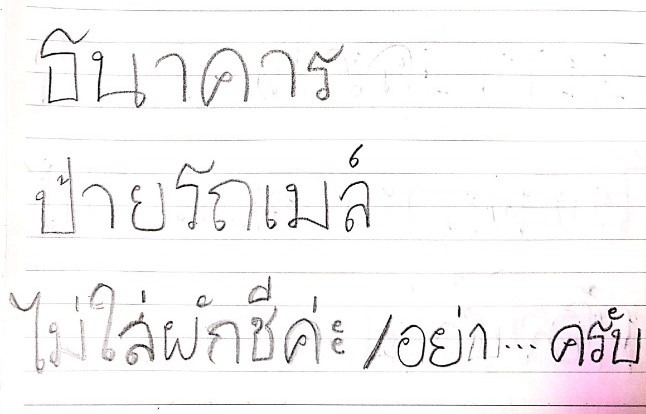 ธนาคาร
ป้ายรถเมล์
ไม่ใส่ผักชีค่ะ /อย่า... ครับ